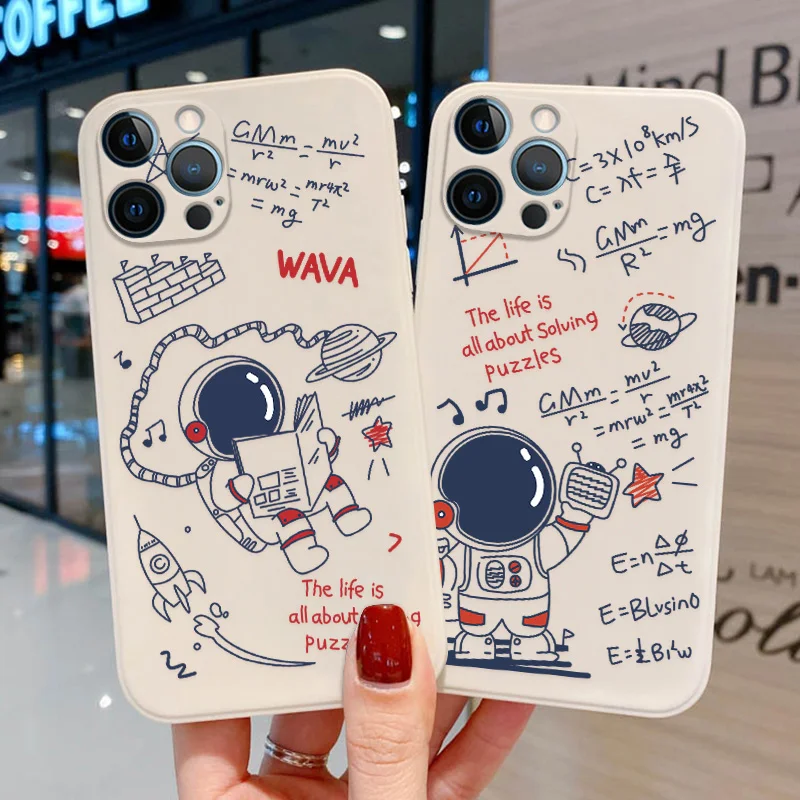 COFFEE
Mind B
GMm/r² = mv²/r
= mrω² = mr4π²/T²
= mg
WAVA
The life is
all about
puzz
C=3×10⁸km/S
C=λf=Δ/T
GMm/R²=mg
The life is
all about Solving
puzzles
GMm/r² = mv²/r
= mrω² = mr4π²/T²
= mg
E=nΔϕ/Δt
E=BLvsinθ
E=½Bl²w
LAM